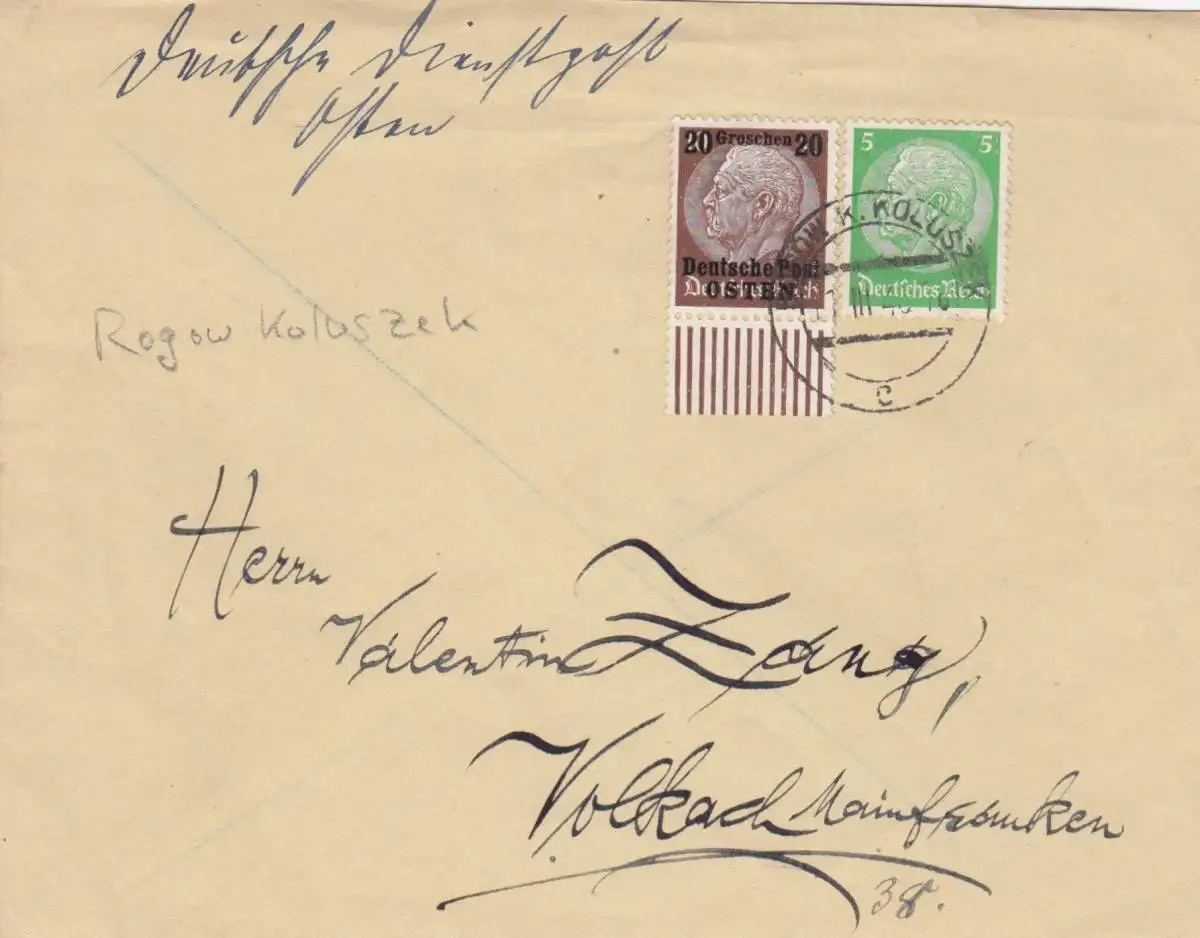 Deutsche Dienstpost
Osten
20 Groschen 20
Deutsche Post
OSTEN
Deutsches Reich
5 5
Deutsches Reich
K. KOLUS
III
c
Rogow Koluszek
Herrn
Valentin Zang,
Volkach Mainfranken
38.